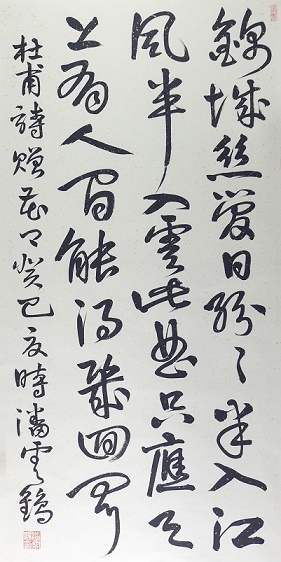 錦城絲管日紛々半入江
風半入雲此曲只應天
上有人間能得幾回聞
杜甫詩贈花卿癸巳夏時潘雲鶴